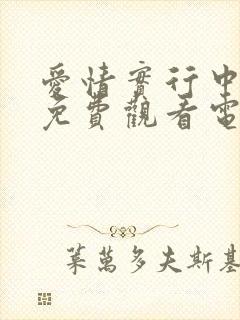 愛情實行中
免費觀看電
萊萬多夫斯基